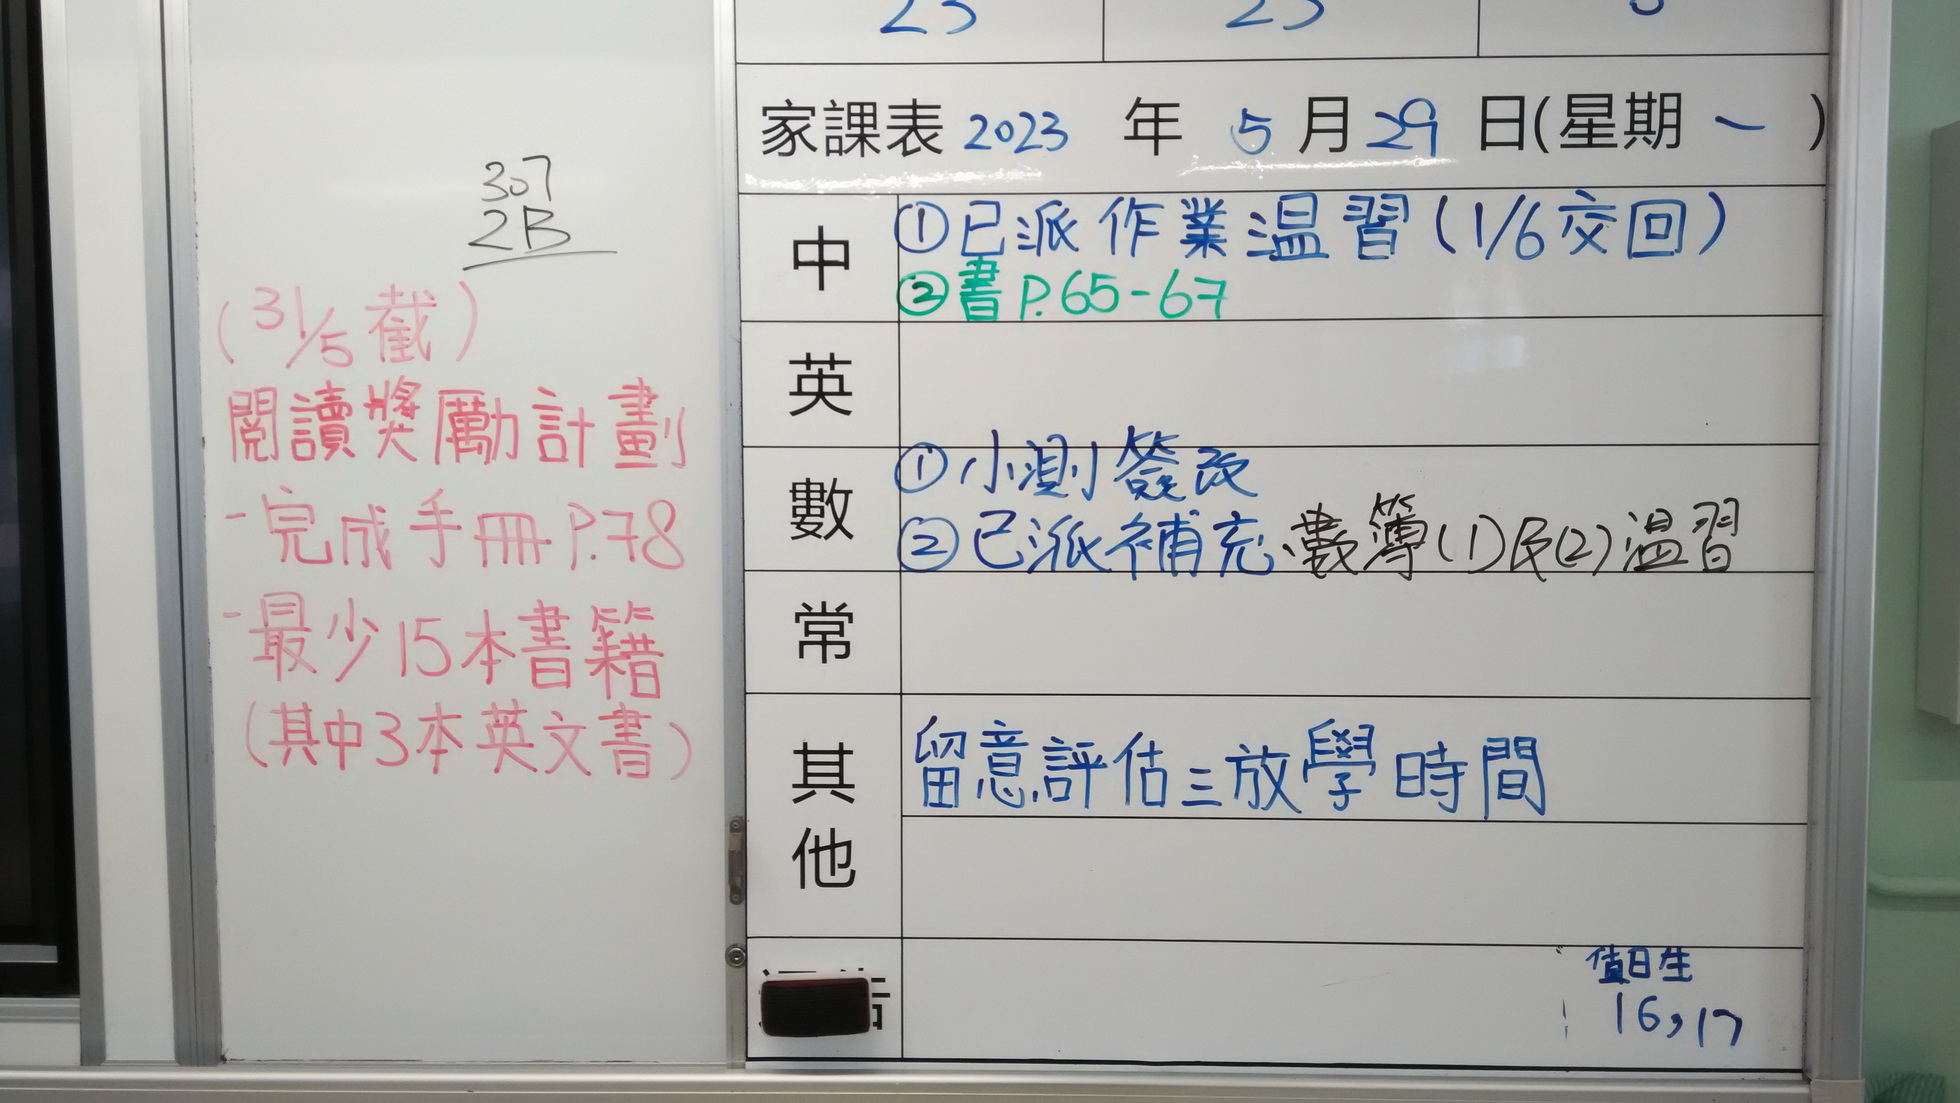 307
2B
(31/5 截)
閱讀獎勵計劃
-完成手冊P.78
-最少15本書籍
(其中3本英文書)
23 23
家課表 2023 年 5 月 29 日(星期 一 )
中
①已派作業温習(1/6交回)
②書P.65-67
英
數
①小測簽改
②已派補充數簿(1)及(2)温習
常
其他
留意評估三放學時間
告
值日生
16,17